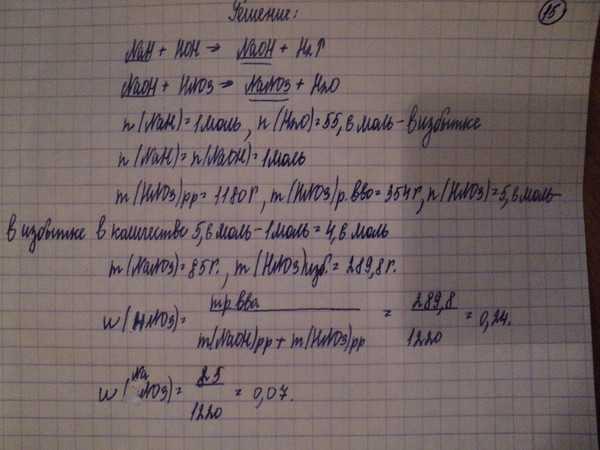 Решение:
15
NaH + HOH → NaOH + H₂↑
NaOH + HNO₃ → NaNO₃ + H₂O
n(NaH) = 1 моль, n(H₂O) = 55,6 моль - в избытке
n(NaH) = n(NaOH) = 1 моль
m(HNO₃)рр = 1180 г, m(HNO₃)р.вва = 354 г, n(HNO₃) = 5,6 моль -
в избытке в количестве 5,6 моль - 1 моль = 4,6 моль
m(NaNO₃) = 85 г. , m(HNO₃)изб. = 289,8 г.
w(HNO₃) = mр.вва / m(NaOH)рр + m(HNO₃)рр = 289,8 / 1220 = 0,24.
w(NaNO₃) = 85 / 1220 = 0,07.